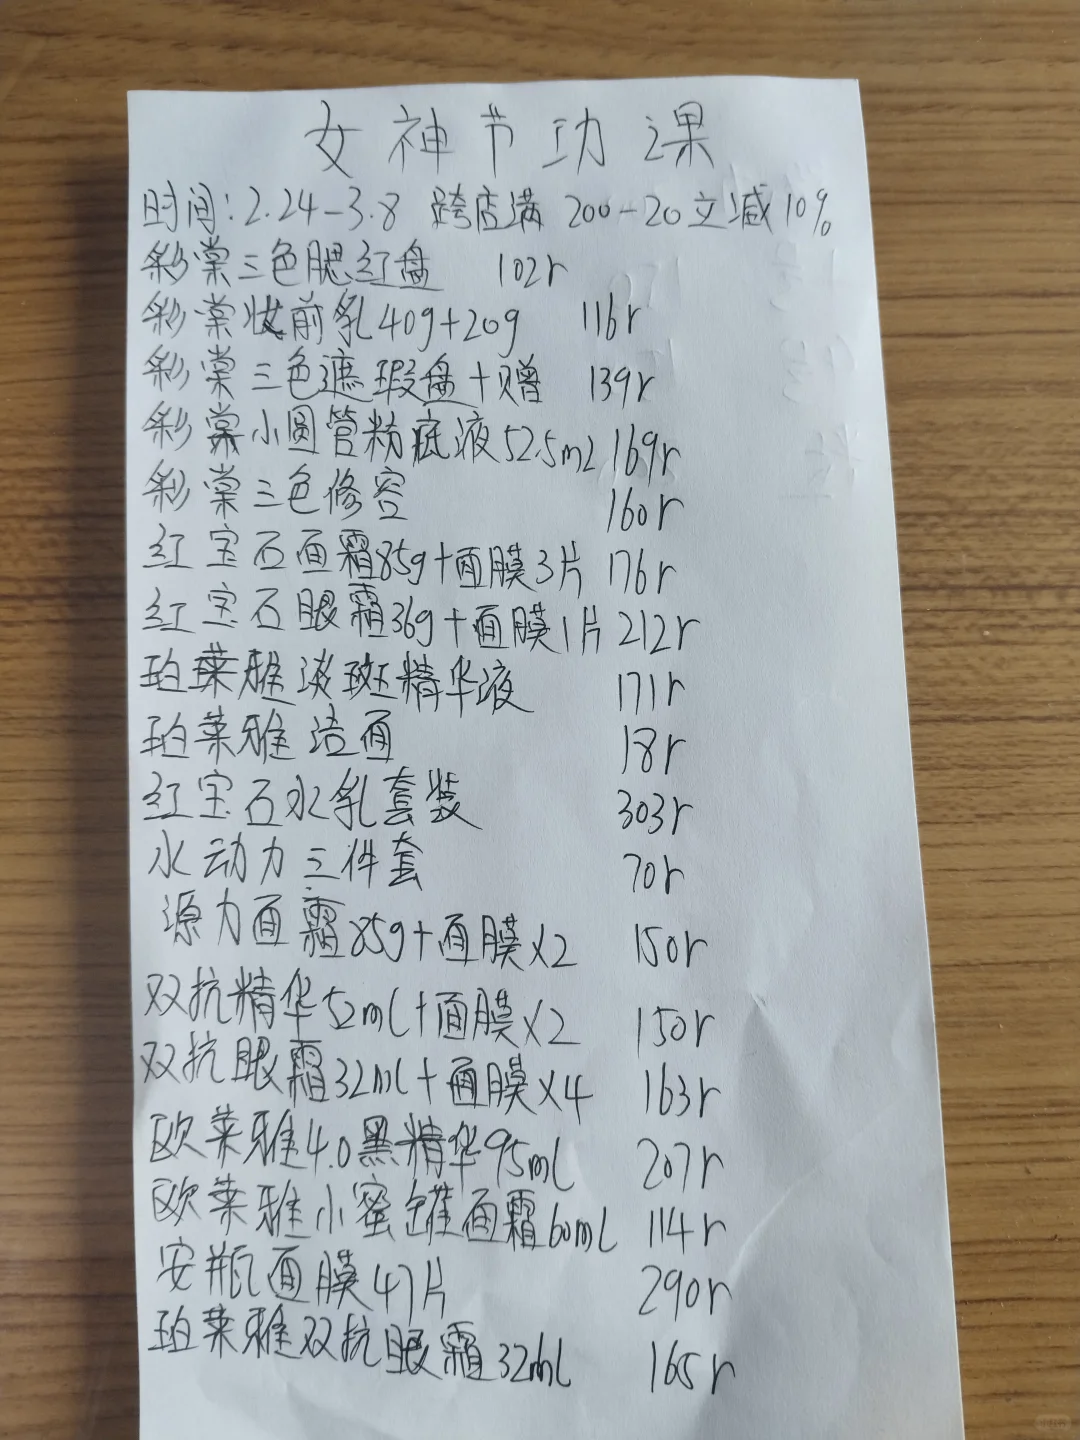 女神节功课
时间:2.24-3.8 跨店满 200-20立减10%
彩棠三色腮红盘 102r
彩棠妆前乳40g+20g 116r
彩棠三色遮瑕盘+赠 139r
彩棠小圆管粉底液52.5mL 169r
彩棠三色修容 160r
红宝石面霜85g+面膜3片 176r
红宝石眼霜36g+面膜1片 212r
珀莱雅淡斑精华液 171r
珀莱雅洁面 18r
红宝石水乳套装 303r
水动力三件套 70r
源力面霜85g+面膜x2 150r
双抗精华52ml+面膜x2 150r
双抗眼霜32ml+面膜x4 163r
欧莱雅4.0黑精华95ml 207r
欧莱雅小蜜罐面霜60ml 114r
安瓶面膜47片 290r
珀莱雅双抗眼霜32ml 165r